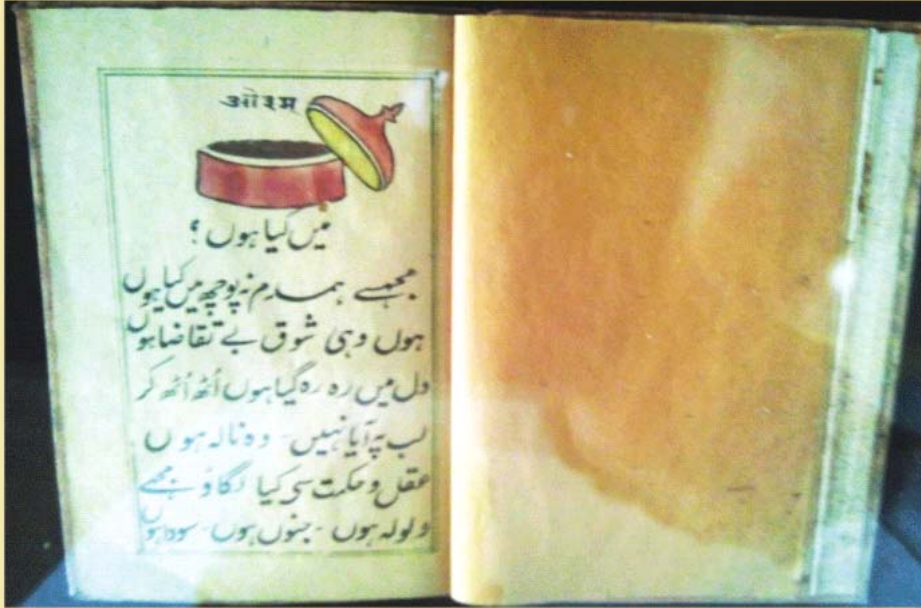 ओ३म
میں کیا ہوں ؟
مجھسے ہمدم نہ پوچھ میں کیا ہوں
ہوں وہی شوق بے تقاضا ہوں
دل میں رہ رہ گیا ہوں اُٹھ اُٹھ کر
لب پہ آیا نہیں - وہ نالہ ہوں
عقل و حکمت سی کیا لگاؤ مجھے
ولولہ ہوں - جنوں ہوں - سودا ہوں